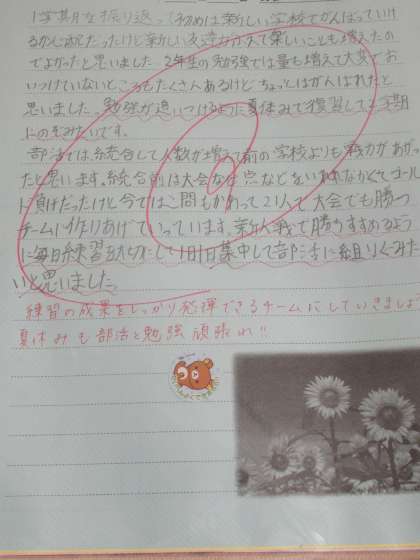 1学期を振り返って初めは新しい学校でがんばっていけ
るか心配だったけど新しい友達ができて楽しいことも増えたの
でよかったと思いました。2年生の勉強では量も増えて大変でお
いつけていないところもたくさんあるけどちょっとはがんばれたと
思いました。勉強が追いつけるように夏休みで復習して2学期
にのぞみたいです。
部活では、統合して人数が増えて前の学校よりも戦力があがっ
たと思います。統合前は大会など点などをいれなくてコール
ド負けだったけど今では
間もかわって21人で大会でも勝つ
チームに作りあげていっています。新人戦で勝ちすすめるよう
に毎日練習を大切にして1日1日集中して部活に組りくみた
いと思いました。
練習の成果をしっかり発揮できるチームにしていきましょ
夏休みも部活と勉強頑張れ!!